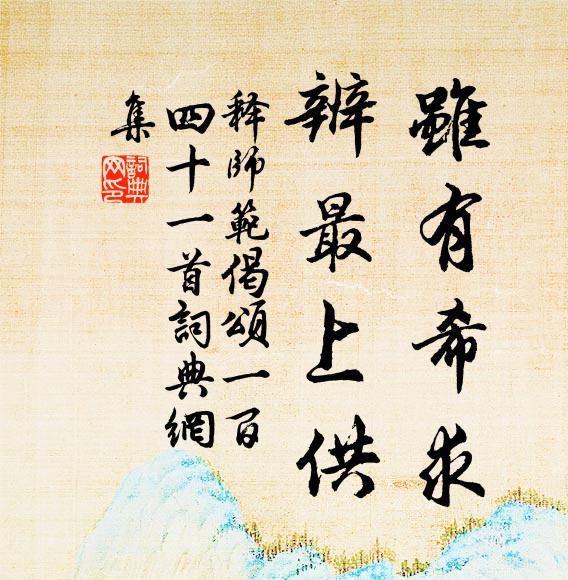 雖有希求
辨最上供
释師範偈頌一百
四十一首詞典網
集
詞典網印